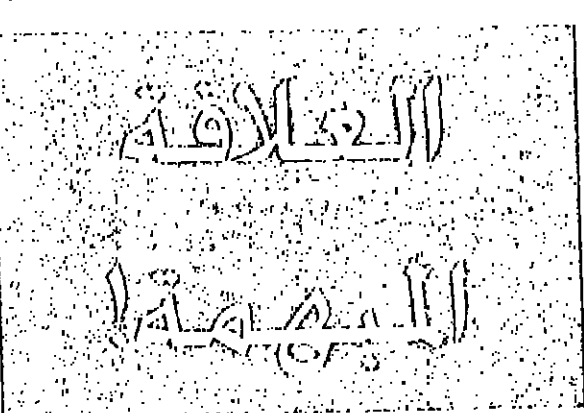 العلاقة
المبهمة!